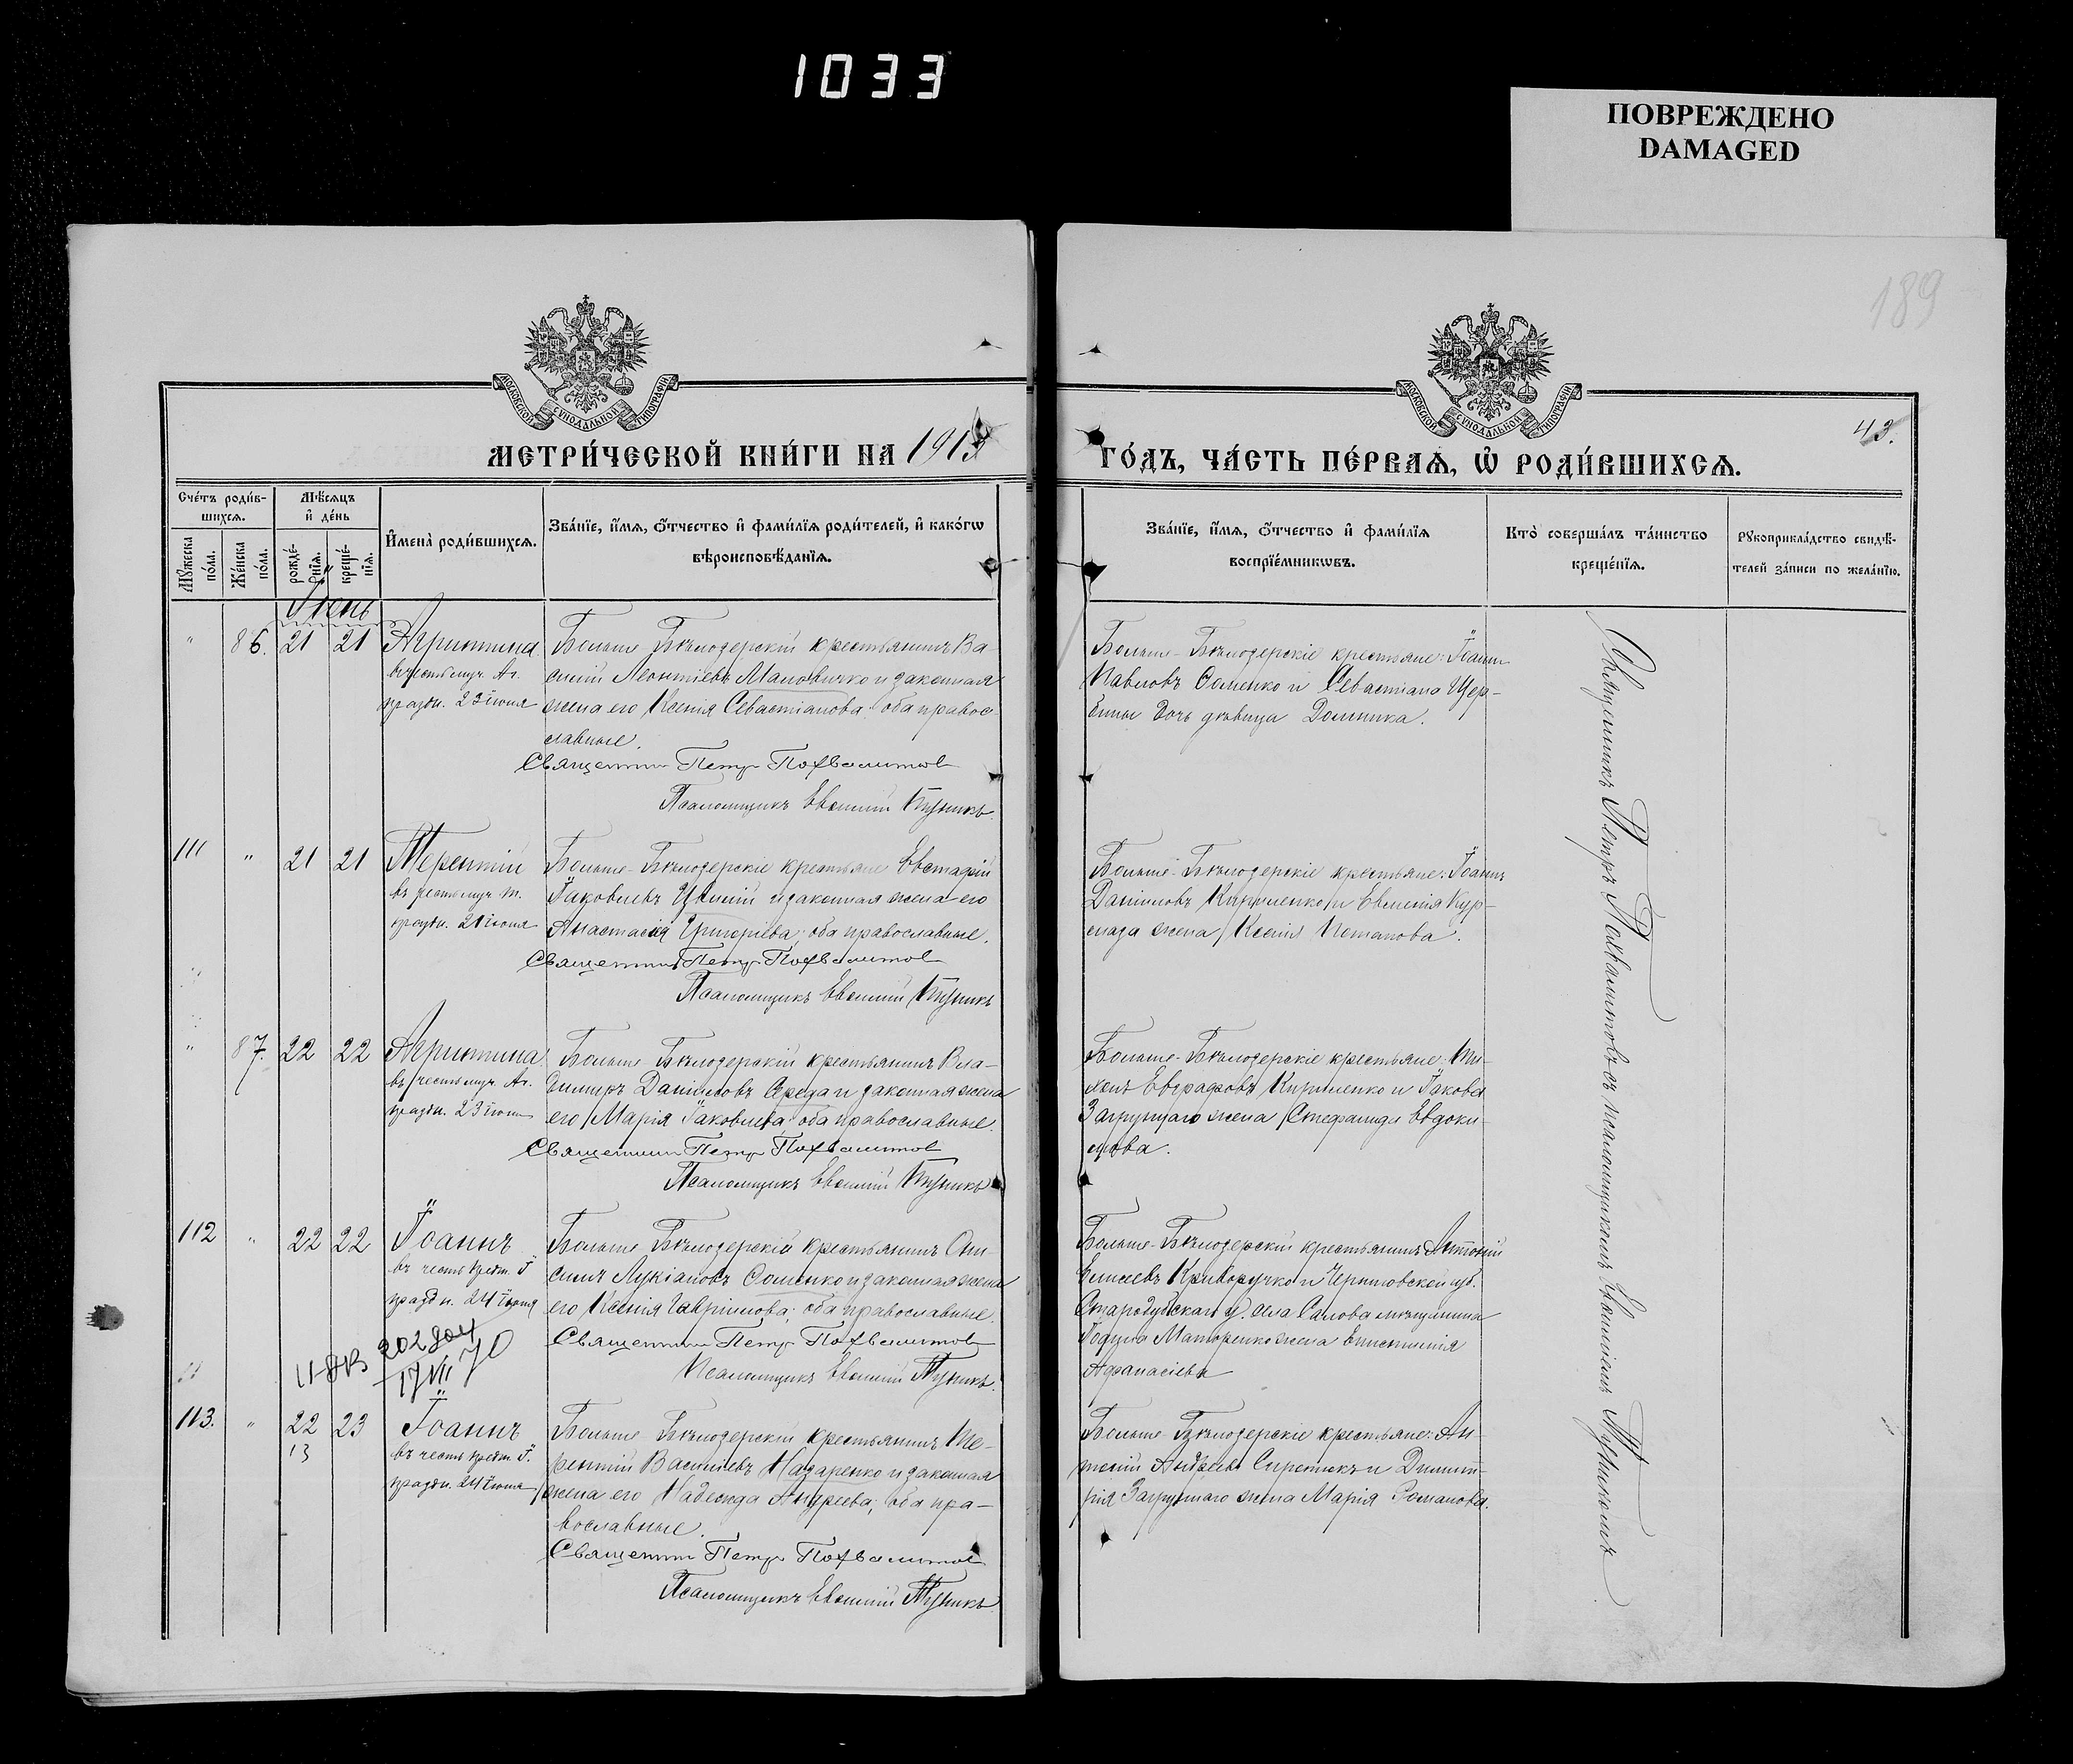 1033
ПОВРЕЖДЕНО
DAMAGED
189
43.
МОСКОВСКОЙ СѴНОДАЛЬНОЙ ТИПОГРАФІИ
МОСКОВСКОЙ СѴНОДАЛЬНОЙ ТИПОГРАФІИ
МЕТРИ́ЧЕСКОЙ КНИ́ГИ НА 1913
ГО́ДЪ, ЧА́СТЬ ПЕ́РВАѦ, Ѡ҆ РОДИ́ВШИХСѦ.
Сче́тъ роди́в-
шихсѧ.
Мѣ́сѧцъ
и҆ де́нь
Мꙋ́жеска
по́ла.
Же́нска
по́ла.
рожде́-
нїѧ.
креще́-
нїѧ.
И҆мена̀ роди́вшихсѧ.
Зва́нїе, и҆́мѧ, ѻ҆́тчество и҆ фами́лїѧ роди́телей, и҆ како́гѡ
вѣроисповѣ́данїѧ.
Зва́нїе, и҆́мѧ, ѻ҆́тчество и҆ фами́лїѧ
воспрїе́мникѡвъ.
Кто̀ соверша́лъ та́инство
креще́нїѧ.
Рꙋкоприкла́дство свидѣ́-
телей за́писи по жела́нїю.
Іюнь
" 86. 21 21 Агриппина
въ честь муч. Аг.
праздн. 23 іюня
Больше Бѣлозерскій крестьянинъ Ва-
силій Леонтіевъ Маловичко и законная
жена его Ксенія Севастіанова; оба правос-
лавные.
Священник Петр Похвалитов
Псаломщикъ Евгеній Пузикъ.
Больше-Бѣлозерскіе крестьяне: Іоаннъ
Павловъ Соменко и Севастіана Щер-
бины дочь дѣвица Домника.
111 " 21 21 Терентій
въ честь муч. Т.
праздн. 21 іюня
Больше-Бѣлозерскіе крестьяне Евстафій
Іаковлевъ и законная жена его
Анастасія Григорьева; оба православные.
Священник Петр Похвалитов
Псаломщикъ Евгеній Пузикъ
Больше-Бѣлозерскіе крестьяне: Іоаннъ
Даніиловъ Кириленко и Евгенія Кур-
жена Ксенія Потапова.
" 87. 22 22 Агриппина
въ честь муч. Аг.
праздн. 23 іюня
Больше Бѣлозерскій крестьянинъ Вла-
диміръ Даніиловъ Середа и законная жена
его Марія Іаковлева; оба православные.
Священник Петр Похвалитов
Псаломщикъ Евгеній Пузикъ
Больше-Бѣлозерскіе крестьяне: Ти-
хонъ Евграфовъ Кириленко и Іакова
Загрунаго жена Стефанида Евдоки-
мова.
112 " 22 22 Іоаннъ
въ честь крест. І
праздн. 24 іюня
202804
17 VII 70
Больше Бѣлозерскій крестьянинъ Они-
симъ Лукіановъ Соменко и законная жена
его Ксенія Гавріилова; оба православные.
Священник Петр Похвалитов
Псаломщикъ Евгеній Пузикъ.
Больше-Бѣлозерскій крестьянинъ Антоній
Елисеевъ Криворучко и Черниговской губ.
Стародубскаго у. села мѣщанина
жена Епистимія
Афанасіева
113. " 22 23 Іоаннъ
13
въ честь крест. І.
праздн. 24 іюня
Больше Бѣлозерскій крестьянинъ Те-
рентій Васильевъ Назаренко и законная
жена его Надежда Андреева; оба пра-
вославные.
Священник Петр Похвалитов
Псаломщикъ Евгеній Пузикъ
Больше Бѣлозерскіе крестьяне: Ан-
тоній Андреевъ и Димит-
рія Загрунаго жена Марія Романова.
Священникъ Петръ Похвалитовъ съ псаломщикомъ Евгеніемъ Пузикомъ